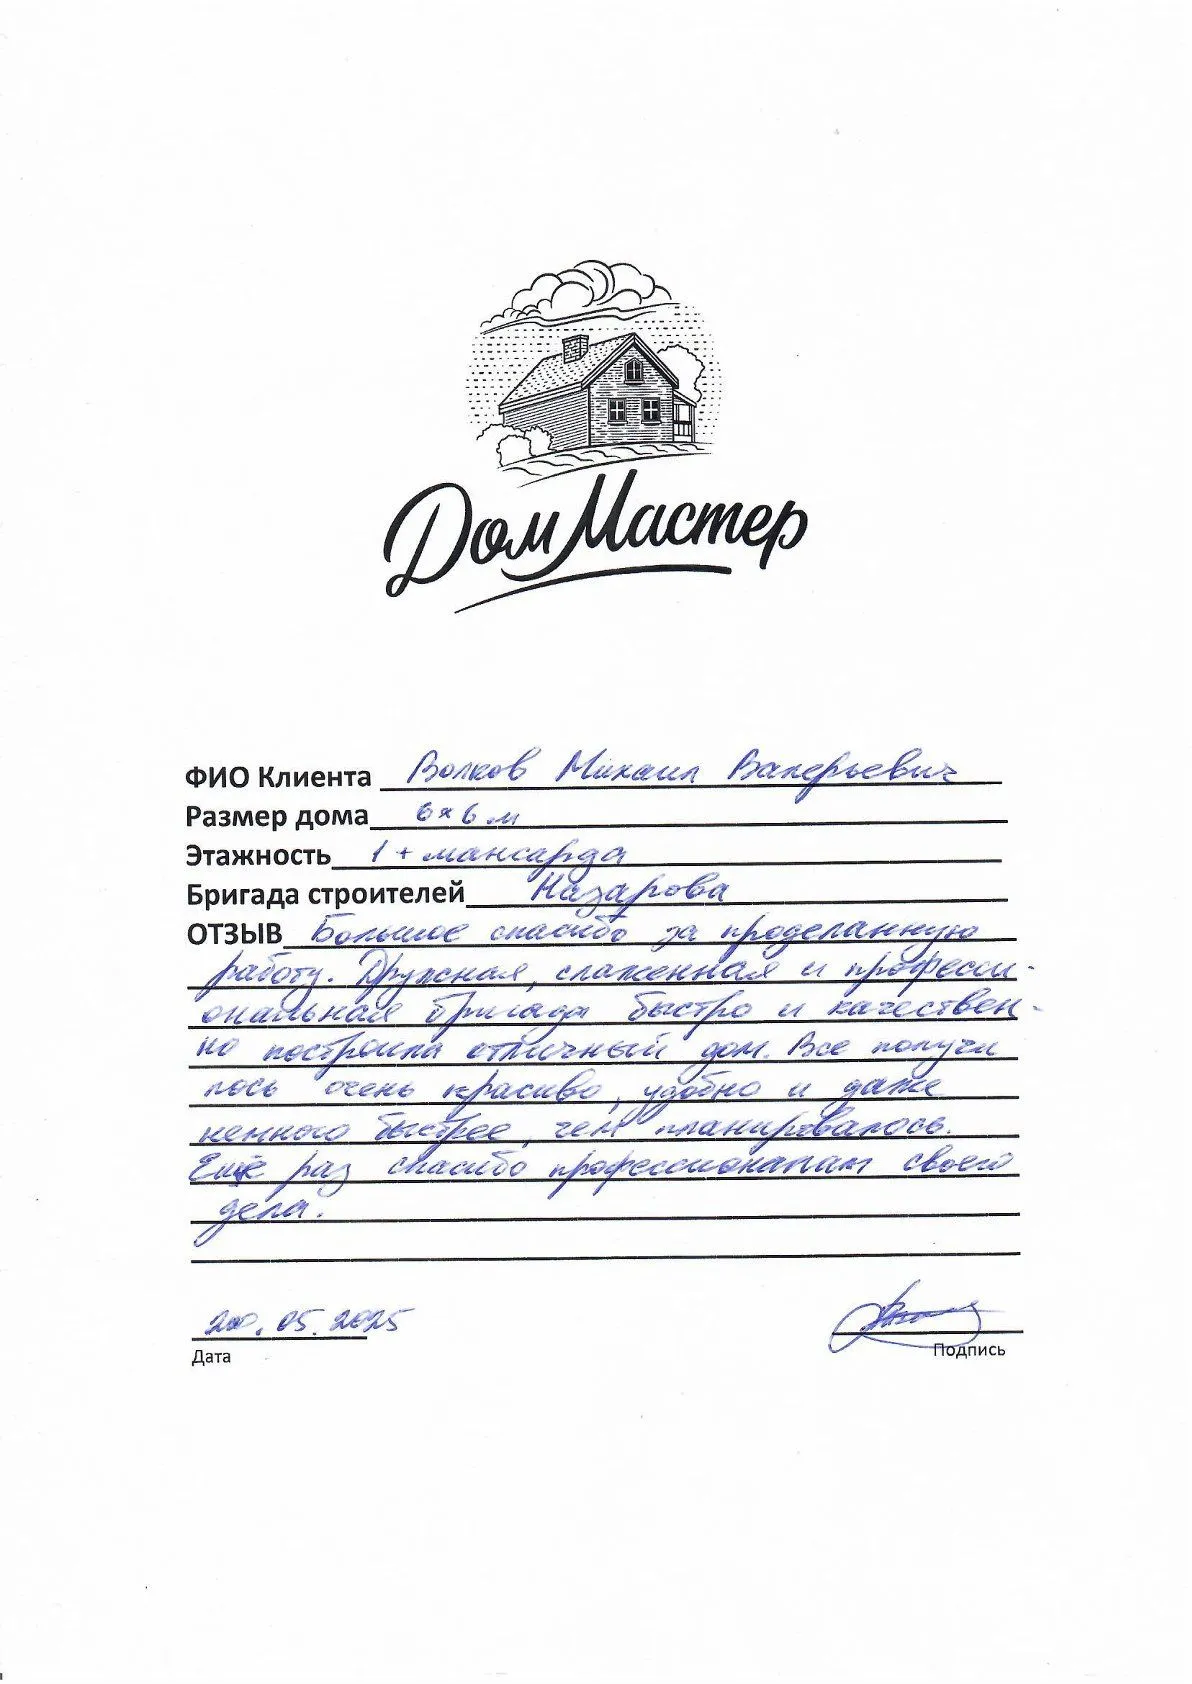 Дом Мастер
ФИО Клиента Волков Михаил Валерьевич
Размер дома 6×6 м
Этажность 1 + мансарда
Бригада строителей Назарова
ОТЗЫВ Большое спасибо за проделанную
работу. Дружная, слаженная и професси-
ональная бригада быстро и качествен-
но построила отличный дом. Все получи
лось очень красиво, удобно и даже
немного быстрее, чем планировалось.
Ещё раз спасибо профессионалам своего
дела.
20.05.2025
Дата
Подпись